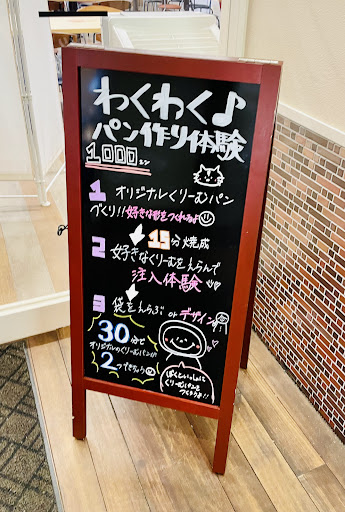 わくわく♪
パン作り体験
1000エン
1 オリジナルくりーむパン
づくり!!好きな形をつくれるよ
↓15分焼成
2 好きなくりーむをえらんで
↓注入体験
3 袋をえらぶorデザイン
30分で
オリジナルのくりーむパンが
2つできちゃう
ぼくといっしょに
くりーむパンを
つくろうよ!!